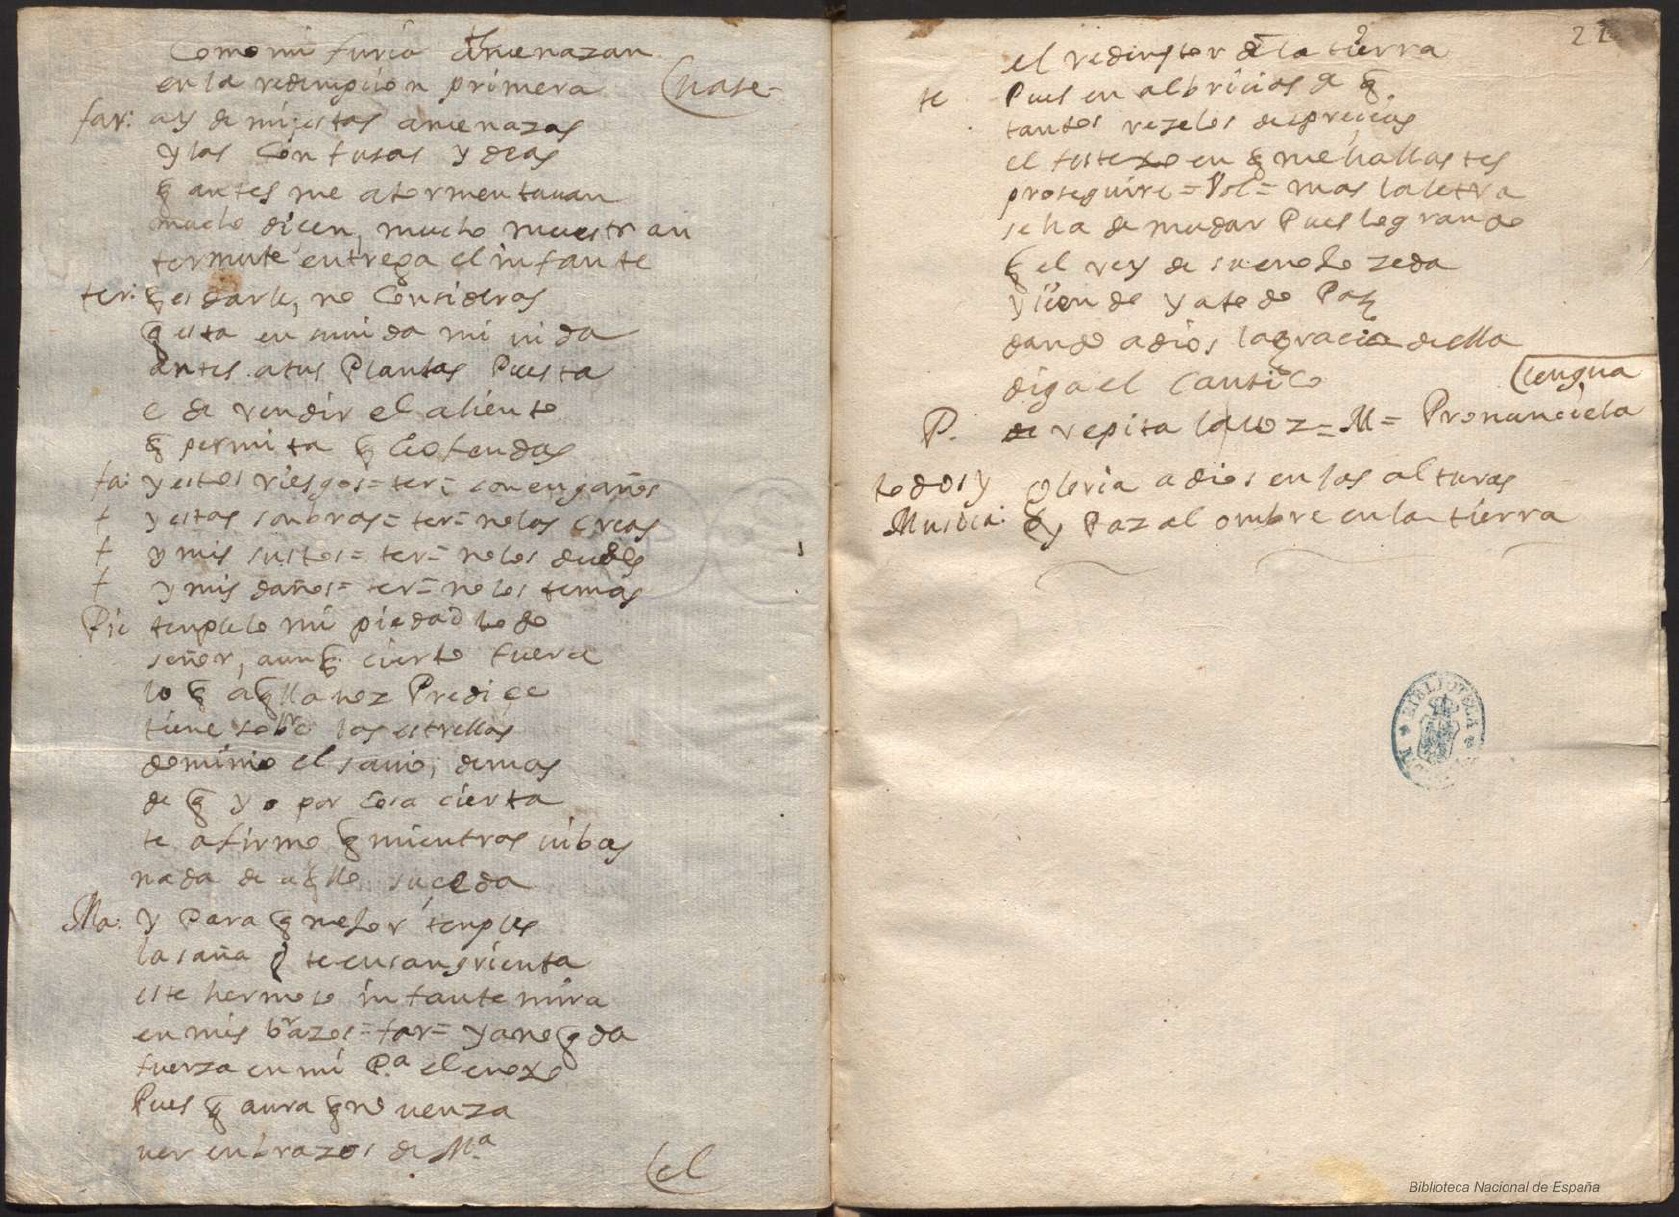 Como mi furia Amenazan
en la redempcion primera (uase-
far: ay de mi estas amenazas
y las Confusas ydeas
q̃ antes me atormentauan
mucho dicen, mucho muestran
termute entrega el infante
ter: q̃ es darle, no Consideras
q̃ esta en su uida mi uida
antes a tus Plantas Puesta
e de rendir el aliento
q̃ permita q̃ le ofendas
fa: y estos riesgos= ter= son engaños
+ y estas sonbras= ter= no las creas
+ y mis sustos= ter= no los dudes
+ y mis daños= ter= no los temas
Pie tenplelo mi piedad todo
señor, aunq̃ cierto fuera
lo q̃ aq̃lla uoz Predice
tiene sobre las estrellas
dominio el sauio, demas
de q̃ yo por cosa cierta
te afirmo q̃ mientras uibas
nada de aq̃llo suceda
Ma: y Para q̃ mejor tenples
la saña q̃ te ensangrienta
este hermoso infante mira
en mis brazos= far= ya no q̃da
fuerza en mi Pa el enojo
Pues q̃ aura q̃ no uenza
uer en brazos de Ma
(el
22
el redemptor de la tierra
te Pues en albricias de q̃
tantos rezelos desprecias
el festexo en q̃ me hallastes
proseguire= Vol= mas la letra
se ha de mudar Pues logrando
q̃ el rey de su enojo zeda
uiendo ya todo Paz
dando a dios la gracia della
diga el Cantico (lengua
P. repita la uoz= M= Pronunciela
todos y gloria a dios en las alturas
Musica: y Paz al ombre en la tierra
BIBLIOTECA
Biblioteca Nacional de España